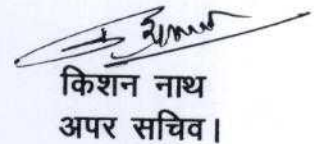 किशन नाथ
अपर सचिव।